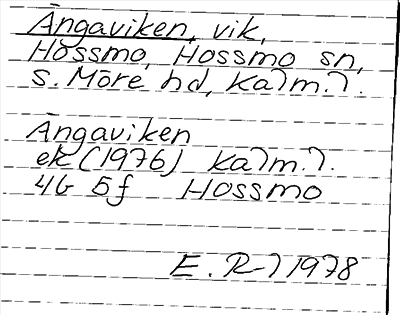 Ängaviken, vik,
Hossmo, Hossmo sn,
S. Möre hd, Kalm. l.
Ängaviken
ek (1976) Kalm. l.
4G 5f Hossmo
E. Rl 1978